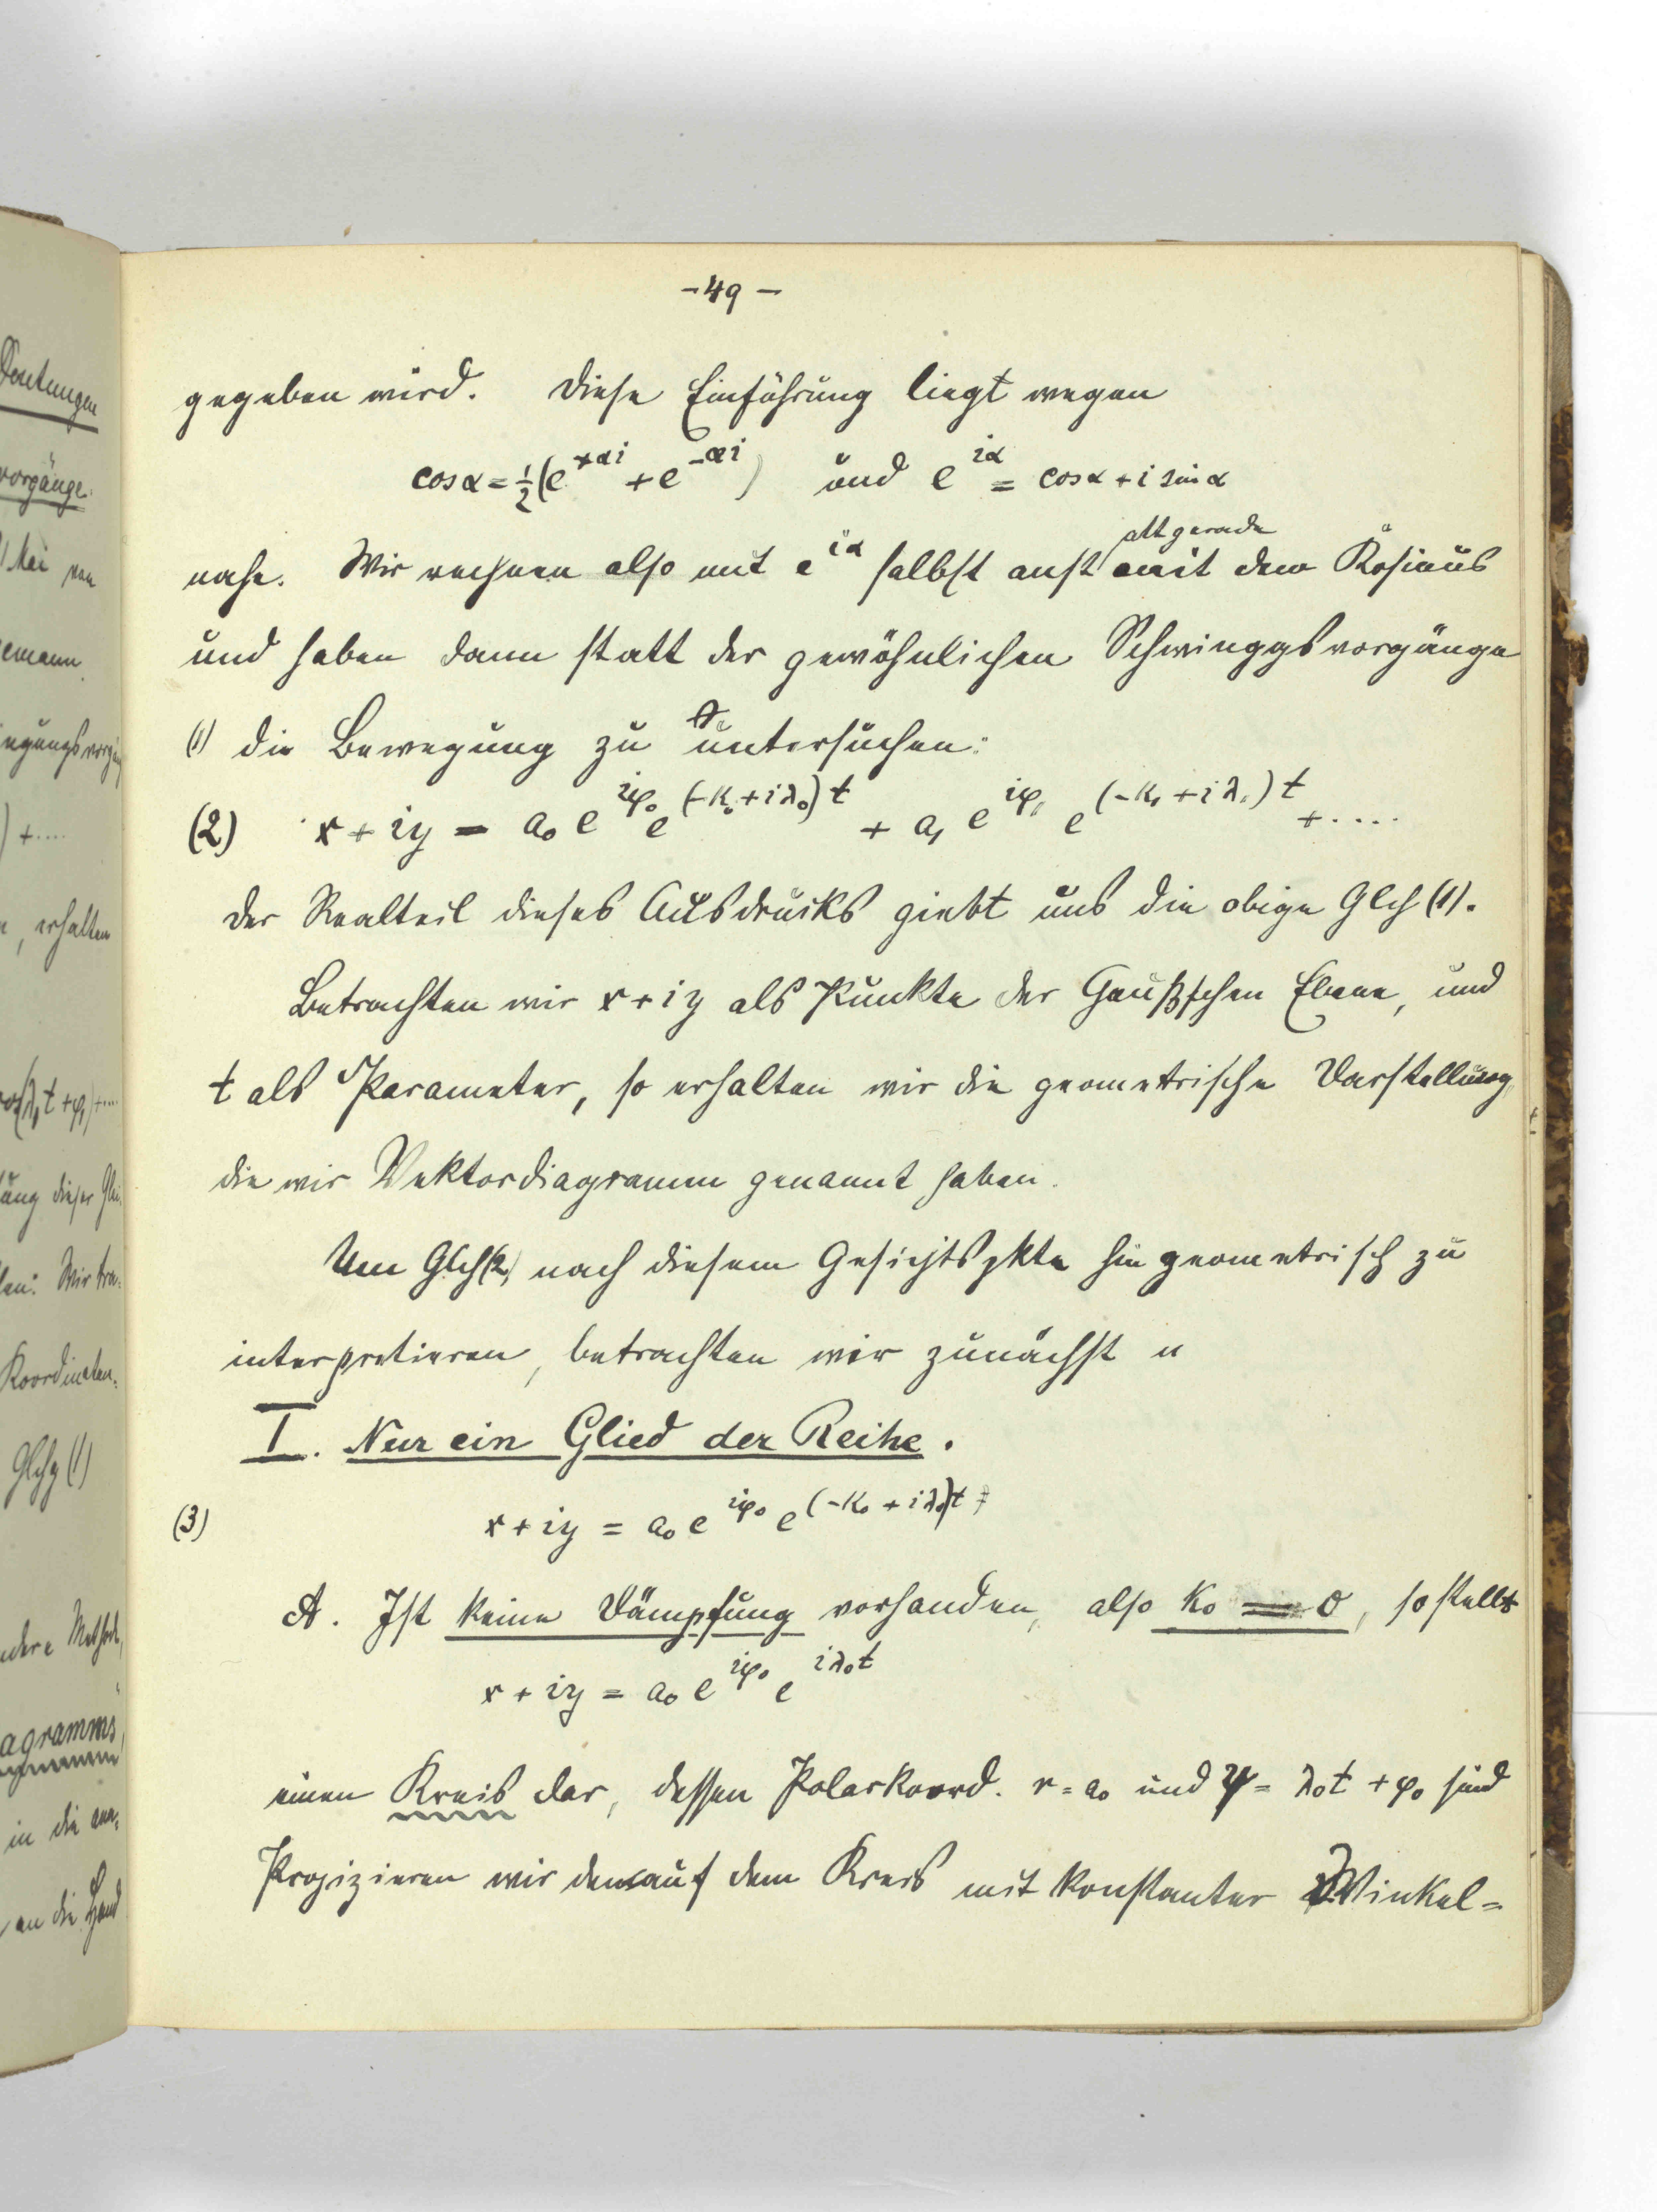 - 49 -
gegeben wird. Diese Einführung liegt wegen
cos α = ½ (e^{+αi} + e^{-αi}) und e^{iα} = cos α + i sin α
nahe. Wir rechnen also mit e^{iα} selbst anst mit dem Kosinus
und haben dann statt der gewöhnlichen Schwinggsvorgänge
(1) die Bewegung zu untersuchen:
(2) x + iy = a₀ e^{iφ₀} e^{(-k₀ + iλ₀)t} + a₁ e^{iφ₁} e^{(-k₁ + iλ₁)t} + ....
Der Realteil dieses Ausdrucks giebt uns die obige Glch (1).
Betrachten wir x + iy als Punkte der Gaußschen Ebene, und
t als Parameter, so erhalten wir die geometrische Darstellung,
die wir Vektordiagramm genannt haben.
Um Glch (2) nach diesem Gesichtspkte hin geometrisch zu
interpretieren, betrachten wir zunächst
I. Nur ein Glied der Reihe.
(3) x + iy = a₀ e^{iφ₀} e^{(-k₀ + iλ₀)t}
A. Ist keine Dämpfung vorhanden, also k₀ = 0, so stellt
x + iy = a₀ e^{iφ₀} e^{iλ₀t}
einen Kreis dar, dessen Polarkoord. r = a₀ und ψ = λ₀t + φ₀ sind
Projizieren wir den auf dem Kreis mit konstanter Winkel=
Deutungen
vorgänge.
Mai von
+....
, erhalten
λ₁t + φ₁) + ....
ung dieser
Wir
Koordinaten:
Glchg (1)
agramms
in die
an die Hand